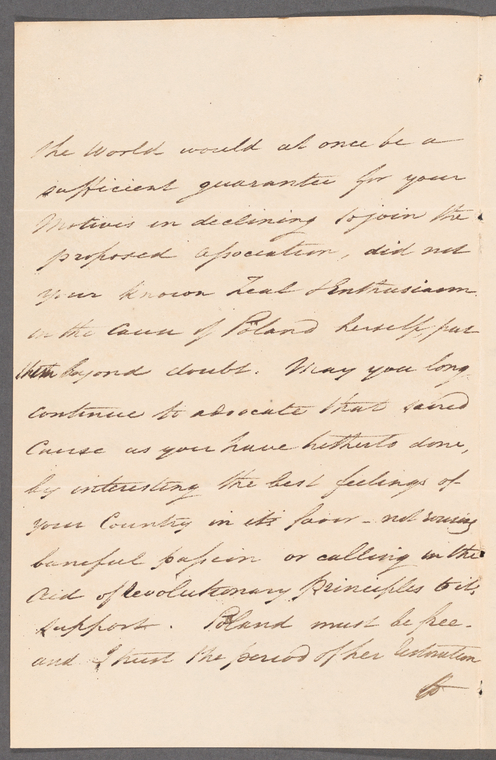 the World would at once be a
sufficient guarantee for your
Motives in declining to join the
proposed Association, did not
your known Zeal & Enthusiasm
in the Cause of Poland herself, put
them beyond doubt. May you long
continue to advocate that sacred
Cause as you have hitherto done,
by interesting the best feelings of
your Country in its favor - not rousing
baneful passion or calling in the
aid of Revolutionary Principles to its
support. Poland must be free -
and I trust the period of her restoration
to